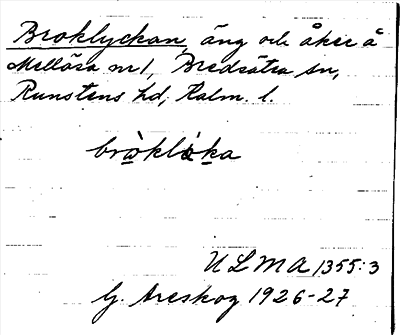 Broklyckan, äng och åker å
Mellösa nr 1, Bredsätra sn,
Runstens hd, Kalm. l.
bròklìka
ULMA 1355:3
G. Areskog 1926-27